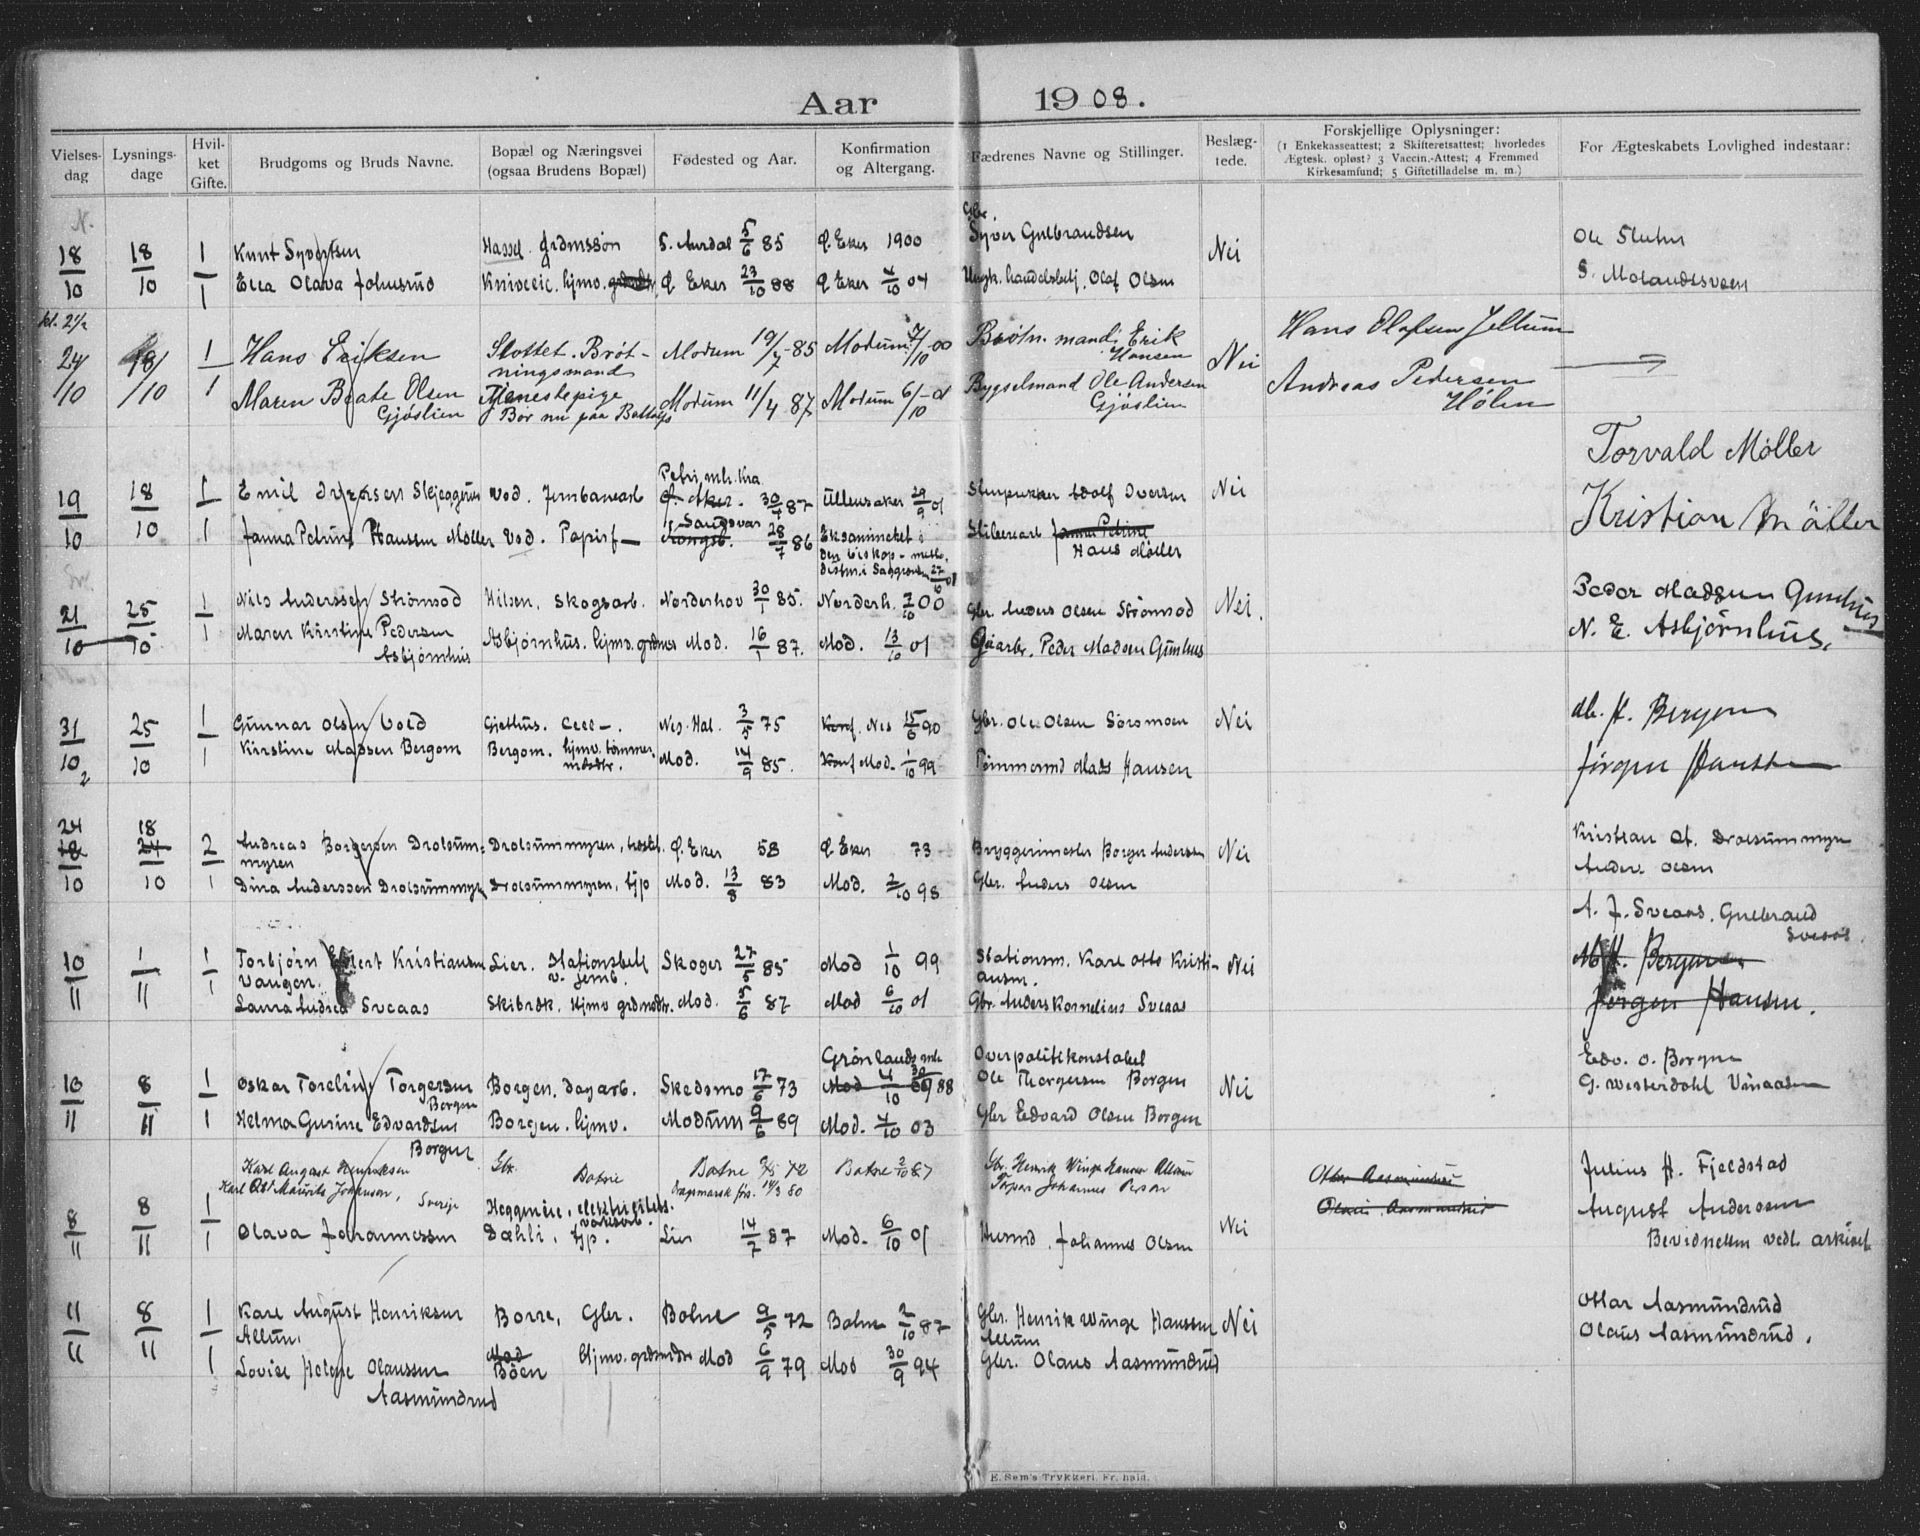 Aar 1908.
Vielses- dag | Lysnings- dage | Hvil- ket Gifte. | Brudgoms og Bruds Navne. | Bopæl og Næringsvei (ogsaa Brudens Bopæl) | Fødested og Aar. | Konfirmation og Altergang. | Fædrenes Navne og Stillinger. | Beslæg- tede. | Forskjellige Oplysninger: (1 Enkekasseattest; 2 Skifteretsattest; hvorledes Ægtesk. opløst? 3 Vaccin.-Attest; 4 Fremmed Kirkesamfund; 5 Giftetilladelse m. m.) | For Ægteskabets Lovlighed indestaar:
Gbr.
18/10 | 18/10 | 1 | Knut Syvertsen | Hassel. | S. Aurdal 5/6 85 | Ø. Eker 1900 | Syver Gulbrandsen | Nei | Ole
1 | Ella Olava Johnsrud | hjmv. | Ø. Eker 23/10 88 | Ø Eker 4/10 04 | Olaf Olsen | S. Molandsveen
kl. 2½
24/10 | 18/10 | 1 | Hans Eriksen | Slottet. Brøt- ningsmand | Modum 19/7-85 | Modum 7/10-00 | Brøtn. mand Erik Hansen | Nei | Hans Olafsen Jellum
1 | Maren Beate Olsen Gjøslien | Tjenestepige Bor nu paa | Modum 11/4 87 | Modum 6/10-01 | Bygselmand Ole Andersen Gjøslien | Andreas Pedersen Hølen
Torvald Møller
19/10 | 18/10 | 1 | Emil Iversen Skjeggerud | Vod. Jernbanearb | Petri mh. Kra. Ø. Aker. 30/4 87 | Ullensaker 29/9 01 | Adolf Iversen | Nei | Kristian Møller
1 | Janna Petrine Hansen Møller | Vod. Papirf— | Sandsvær Kongsb. 28/7 86 | Eksamineket i den biskop-meth. 27/10 01 | Sliberiarb Janna Petrine Hans Møller
21/10 | 25/10 | 1 | Nils Anderssen Strømsod | Hilsen. Skogsarb. | Norderhov 30/1 85. | Norderh. 7/10 00 | Gbr. Anders Olsen Strømsod | Nei. | Peder Madsen Gunhus
1 | Maren Kristine Pedersen Asbjørnhus | Asbjørnhus. hjmv. grdmds | Mod. 16/1 87. | Mod. 13/10 01 | Gaarbr. Peder Madsen Gunhus | N. E. Asbjørnhus.
31/10 2 | 25/10 | 1 | Gunnar Olsen Vold | Gjethus. Cell-. | Nes. Hal. 3/5 75 | Konf. Nes 15/6 90 | Gbr. Ole Olsen Sørsmoen | Nei | M. H. Bergom
1 | Kirstine Madsen Bergom | Bergom. hjmv. tømmer- mdsdtr. | Mod. 14/9 85. | Konf Mod. 1/10 99 | Tømmermd Mads Hansen | Jørgen Hansen
24 18/10 | 18 24/10 | 2 | Andreas Borgersen Drolsum- myren | Drolsummyren, | Ø. Eker 58 | Ø Eker 73 | Bryggerimester Borger Anderssen | Nei | Kristian A. Drolsummyr
1 | Dina Anderssen Drolsummyr | Drolsummyren, tjp | Mod. 13/8 83 | Mod. 2/10 98 | Gbr. Anders Olsen | Anders Olsen
A. J. Sveaas. Gulbrand Sveaas.
10/11 | 1/11 | 1 | Torbjørn Kristiansen Vaagen. | Lier. Stationsbetj v. Jernb. | Skoger 27/5 85 | Mod 1/10 99 | Stationsm. Karl Otto Kristi- ansen. | Nei | M. H. Bergom
1 | Laura Andrea Sveaas | Skibræk. Hjmv grdmsdtr. | Mod. 5/6 87 | Mod 6/10 01 | Gbr. Anders Kornelius Sveaas | Jørgen Hansen.
Grønlands mh | Overpolitikonstabel | Edv. O. Borgen
10/11 | 8/11 | 1 | Oskar Toreliny Torgersen Borgen | Borgen. dagarb. | Skedsmo 17/6 73 | Mod 4/10 88 | Ole Thorgersen Borgen | Nei | G. Westerdahl Vinaasen
1 | Helma Gurine Edvardsen Borgen | Borgen. hjmv. | Modum 9/6 89 | Mod. 4/10 03 | Gbr Edvard Olsen Borgen
Karl August Henriksen | Gbr. Botne | Botne 9/5 72 | Botne 2/10 87 | Gbr. Henrik Winge Hansen Allum | Ottar Aasmundrud | Julius H. Fjeldstad
Karl Mauritz Johanson, Sverige | 14/3 80 | Johannes Person | Olaus Aasmundrud | August Andersen
8/11 | 8/11 | 1 | Heggen
1 | Olava Johannessen | Dæhli. tjp. | Lier 14/7 87 | Mod. 6/10 01 | Husmd. Johannes Olsen | Nei | Bevidnelsen vedl. arkivet
11/11 | 8/11 | 1 | Karl August Henriksen Allum. | Borre, Gbr. | Botne 9/5 72 | Botne 2/10 87 | Gbr. Henrik Winge Hanssen Allum | Nei | Ottar Aasmundrud
1 | Lovise Helene Olaussen Aasmundrud | Mod Bøen Hjmv. grdmdtr | Mod 6/9 79 | Mod 30/9 94 | Gbr. Olaus Aasmundrud | Olaus Aasmundrud.
E. Sem's Trykkeri. Fr. hald.